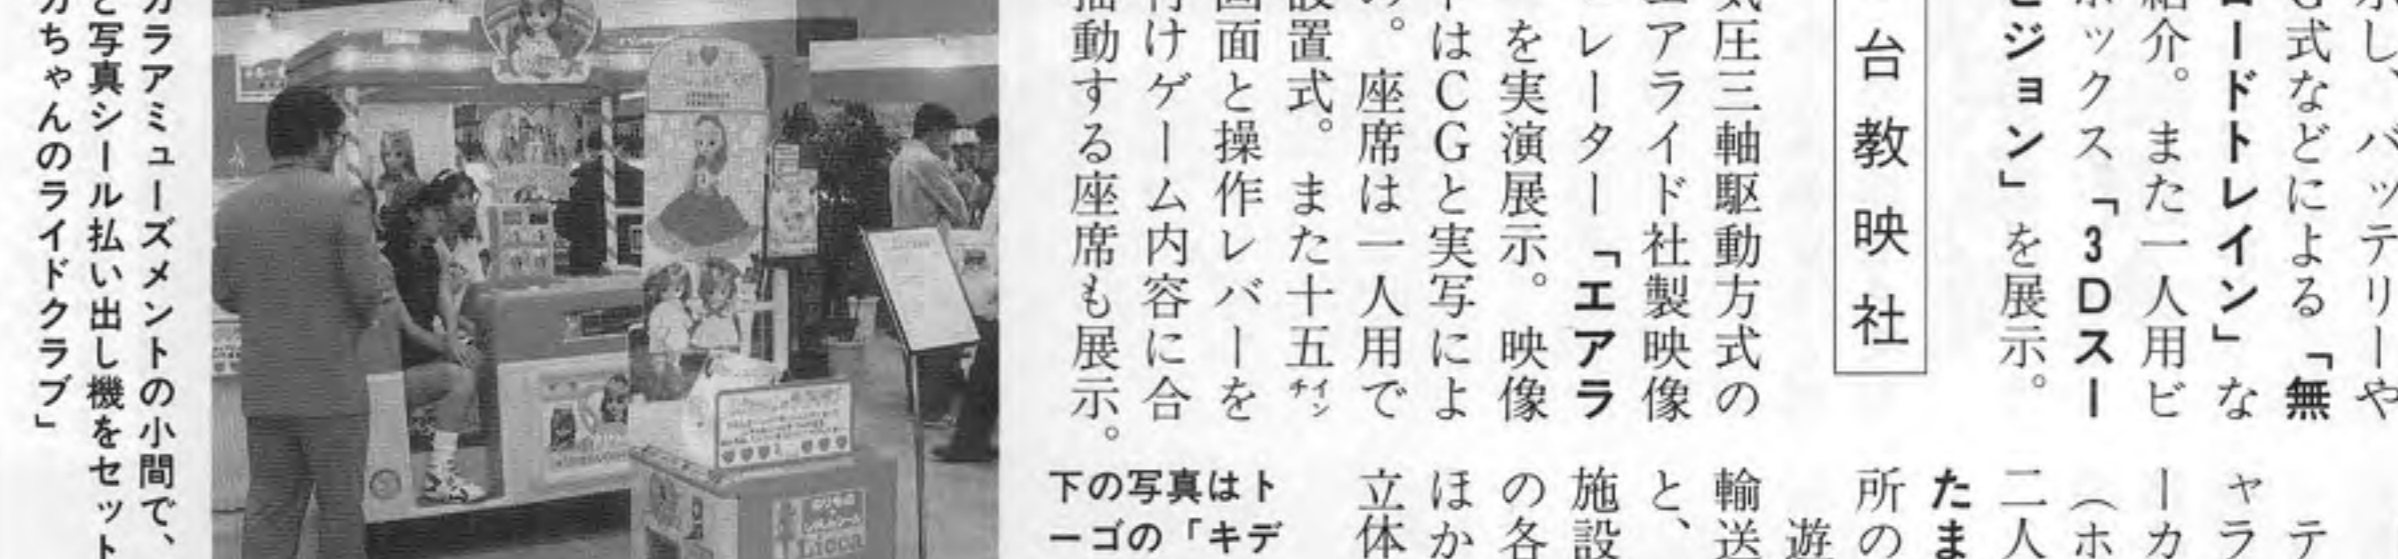 示し、バッテリーや
G式などによる「無
コードトレイン」な
紹介。また一人用ビ
ボックス「3Dスー
ビジョン」を展示。
台教映社
気圧三軸駆動方式の
エアライド社製映像
レーター「エアラ
を実演展示。映像
トはCGと実写によ
の。座席は一人用で
設置式。また十五インチ
画面と操作レバーを
付けゲーム内容に合
揺動する座席も展示。
テ
ャラ
ーカ
(ホ
二人
たま
所の
遊
輸送
と、
施設
の各
ほか
立体
下の写真はト
ーゴの「キデ
カラアミューズメントの小間で、
と写真シール払い出し機をセット
カちゃんのライドクラブ」
Licca